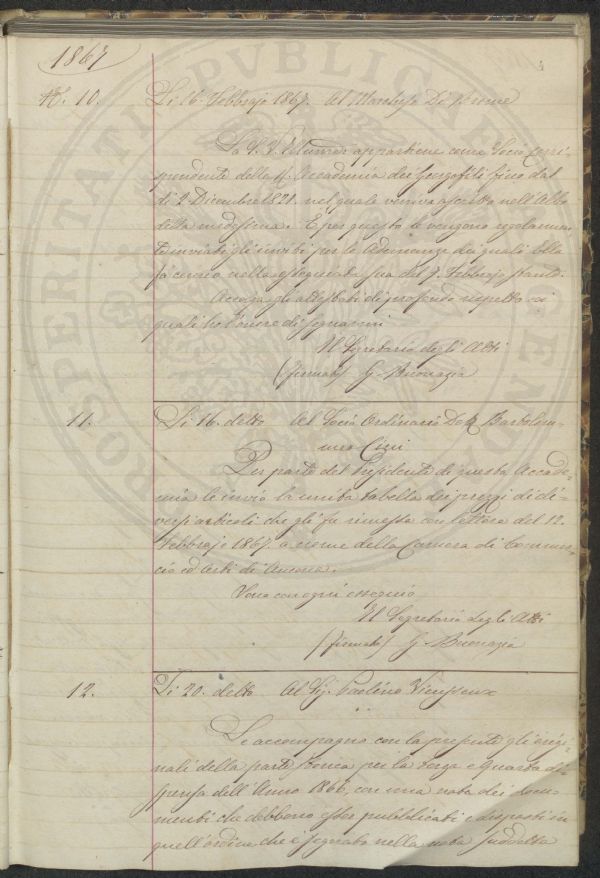 1867
N. 10. Li 16. Febbrajo 1867. Al Marchese De
La V. S. Illma appartiene come Socio Corri-
spondente della R. Accademia dei Georgofili fino dal
di 2 Dicembre 1821. nel quale veniva ascritto nell'Albo
della medesima. E per questo le vengono regolarmen-
te inviati gli inviti per le Adunanze dei quali Ella
fa cenno nella pregiata sua del 7. Febbrajo stante.
Accolga gli attestati di profondo rispetto coi
quali ho l'onore di segnarmi
Il Segretario degli Atti
(firmato) G. Buonazia
11. Li 16. detto Al Socio Ordinario Dott. Bartolom-
meo Cini
Per parte del Presidente di questa Accade-
mia le invio la unita tabella dei prezzi di di-
versi articoli che gli fu rimessa con lettera del 12.
Febbrajo 1867. a nome della Camera di Commer-
cio ed Arti di Ancona.
Sono con ogni ossequio
Il Segretario degli Atti
(firmato) G. Buonazia
12. Li 20. detto Al Sig. Paolino Vieusseux
Le accompagno con la presente gli origi-
nali della parte storica per la terza e quarta di-
spensa dell'Anno 1866, con una nota dei docu-
menti che debbono esser pubblicati e disposti in
quell'ordine che è segnato nella nota suddetta
PROSPERITATI PUBLICAE AUGENDAE